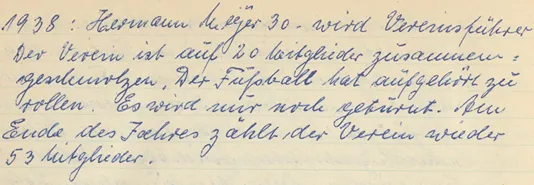 1938: Hermann Meyer 30.- wird Vereinsführer
Der Verein ist auf 20 Mitglieder zusammen=
geschmolzen. Der Fußball hat aufgehört zu
rollen. Es wird nur noch geturnt. Am
Ende des Jahres zählt der Verein wieder
53 Mitglieder.